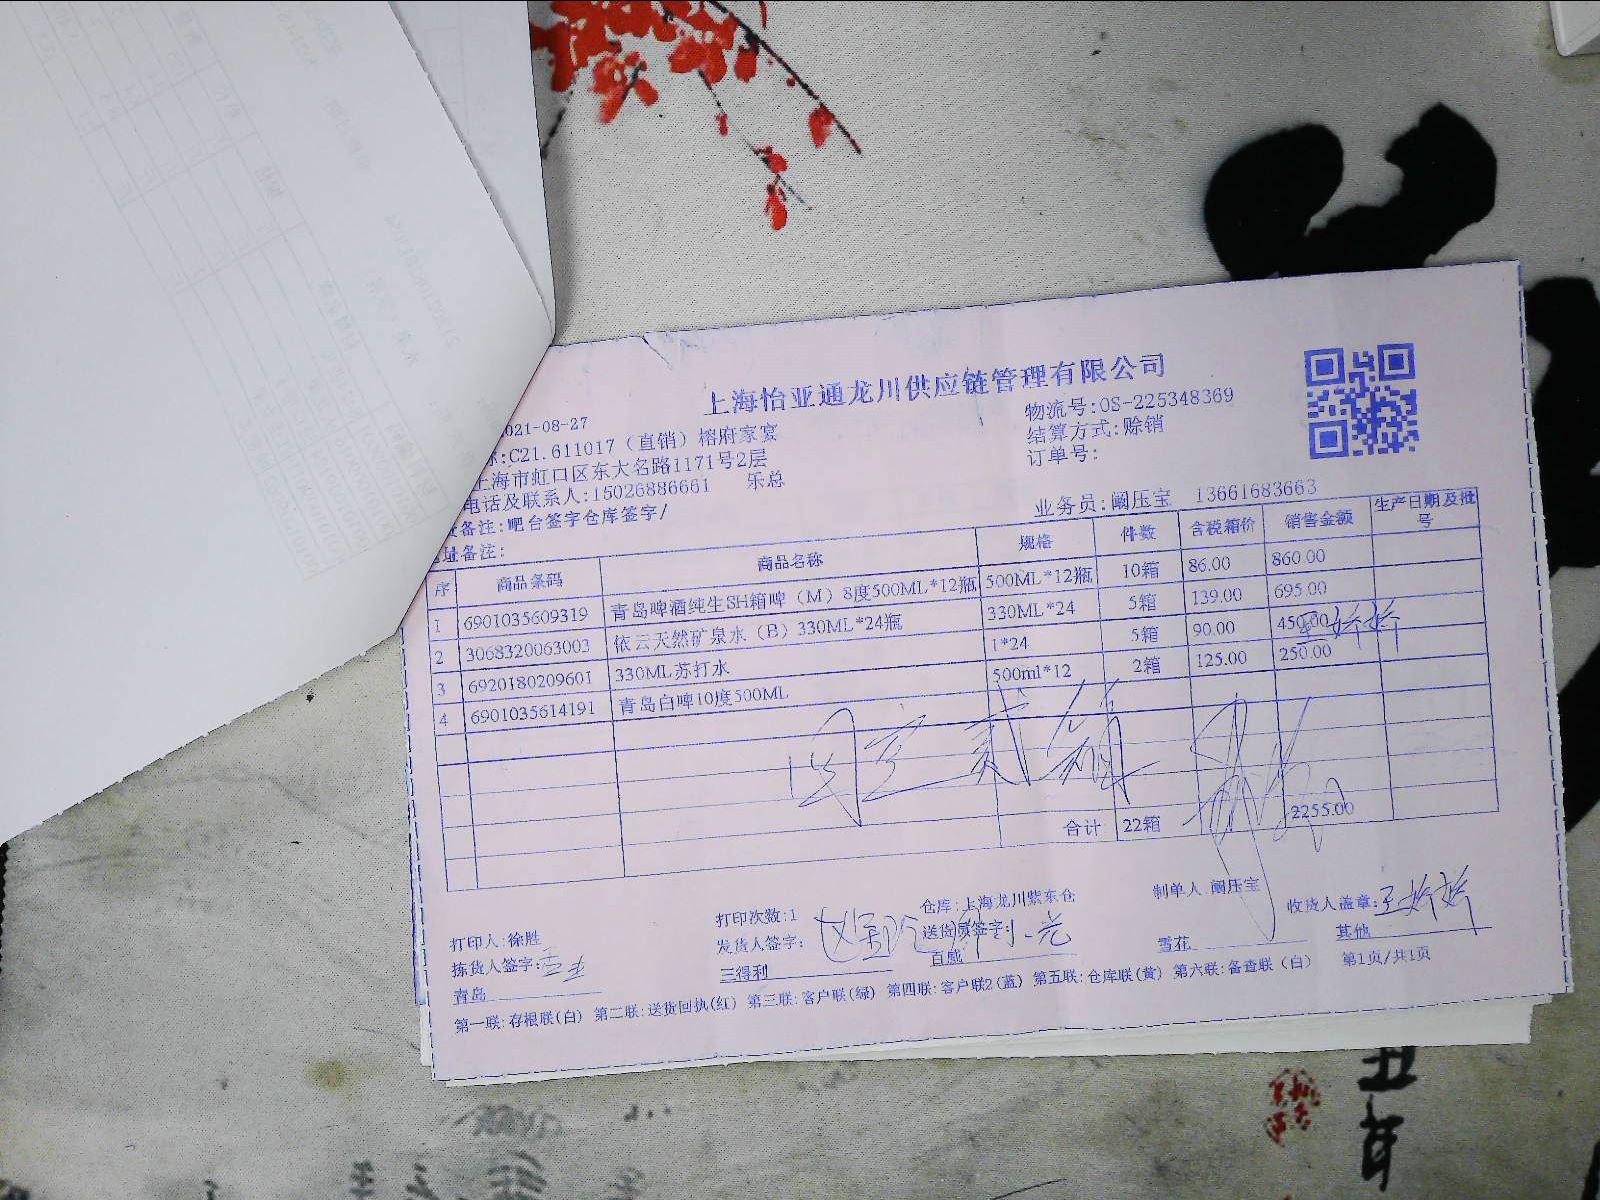 上海怡亚通龙川供应链管理有限公司
021-08-27
物流号:OS-225348369
:C21.611017（直销）榕府家宴
结算方式:赊销
上海市虹口区东大名路1171号2层
订单号:
电话及联系人:15026886661 乐总
业务员:阚压宝 13661683663
备注:吧台签字仓库签字/
址备注:
序 商品条码 商品名称 规格 件数 含税箱价 销售金额 生产日期及批号
1 6901035609319 青岛啤酒纯生SH箱啤（M）8度500ML*12瓶 500ML*12瓶 10箱 86.00 860.00
2 3068320063003 依云天然矿泉水（B）330ML*24瓶 330ML*24 5箱 139.00 695.00
3 6920180209601 330ML苏打水 1*24 5箱 90.00 450.00
4 6901035614191 青岛白啤10度500ML 500ml*12 2箱 125.00 250.00
合计 22箱 2255.00
打印人:徐胜 打印次数:1 仓库:上海龙川紫东仓 制单人:阚压宝 收货人盖章:王娇娇
拣货人签字: 发货人签字: 送货员签字:
青岛 三得利 百威 雪花 其他
第一联:存根联(白) 第二联:送货回执(红) 第三联:客户联(绿) 第四联:客户联2(蓝) 第五联:仓库联(黄) 第六联:备查联（白） 第1页/共1页